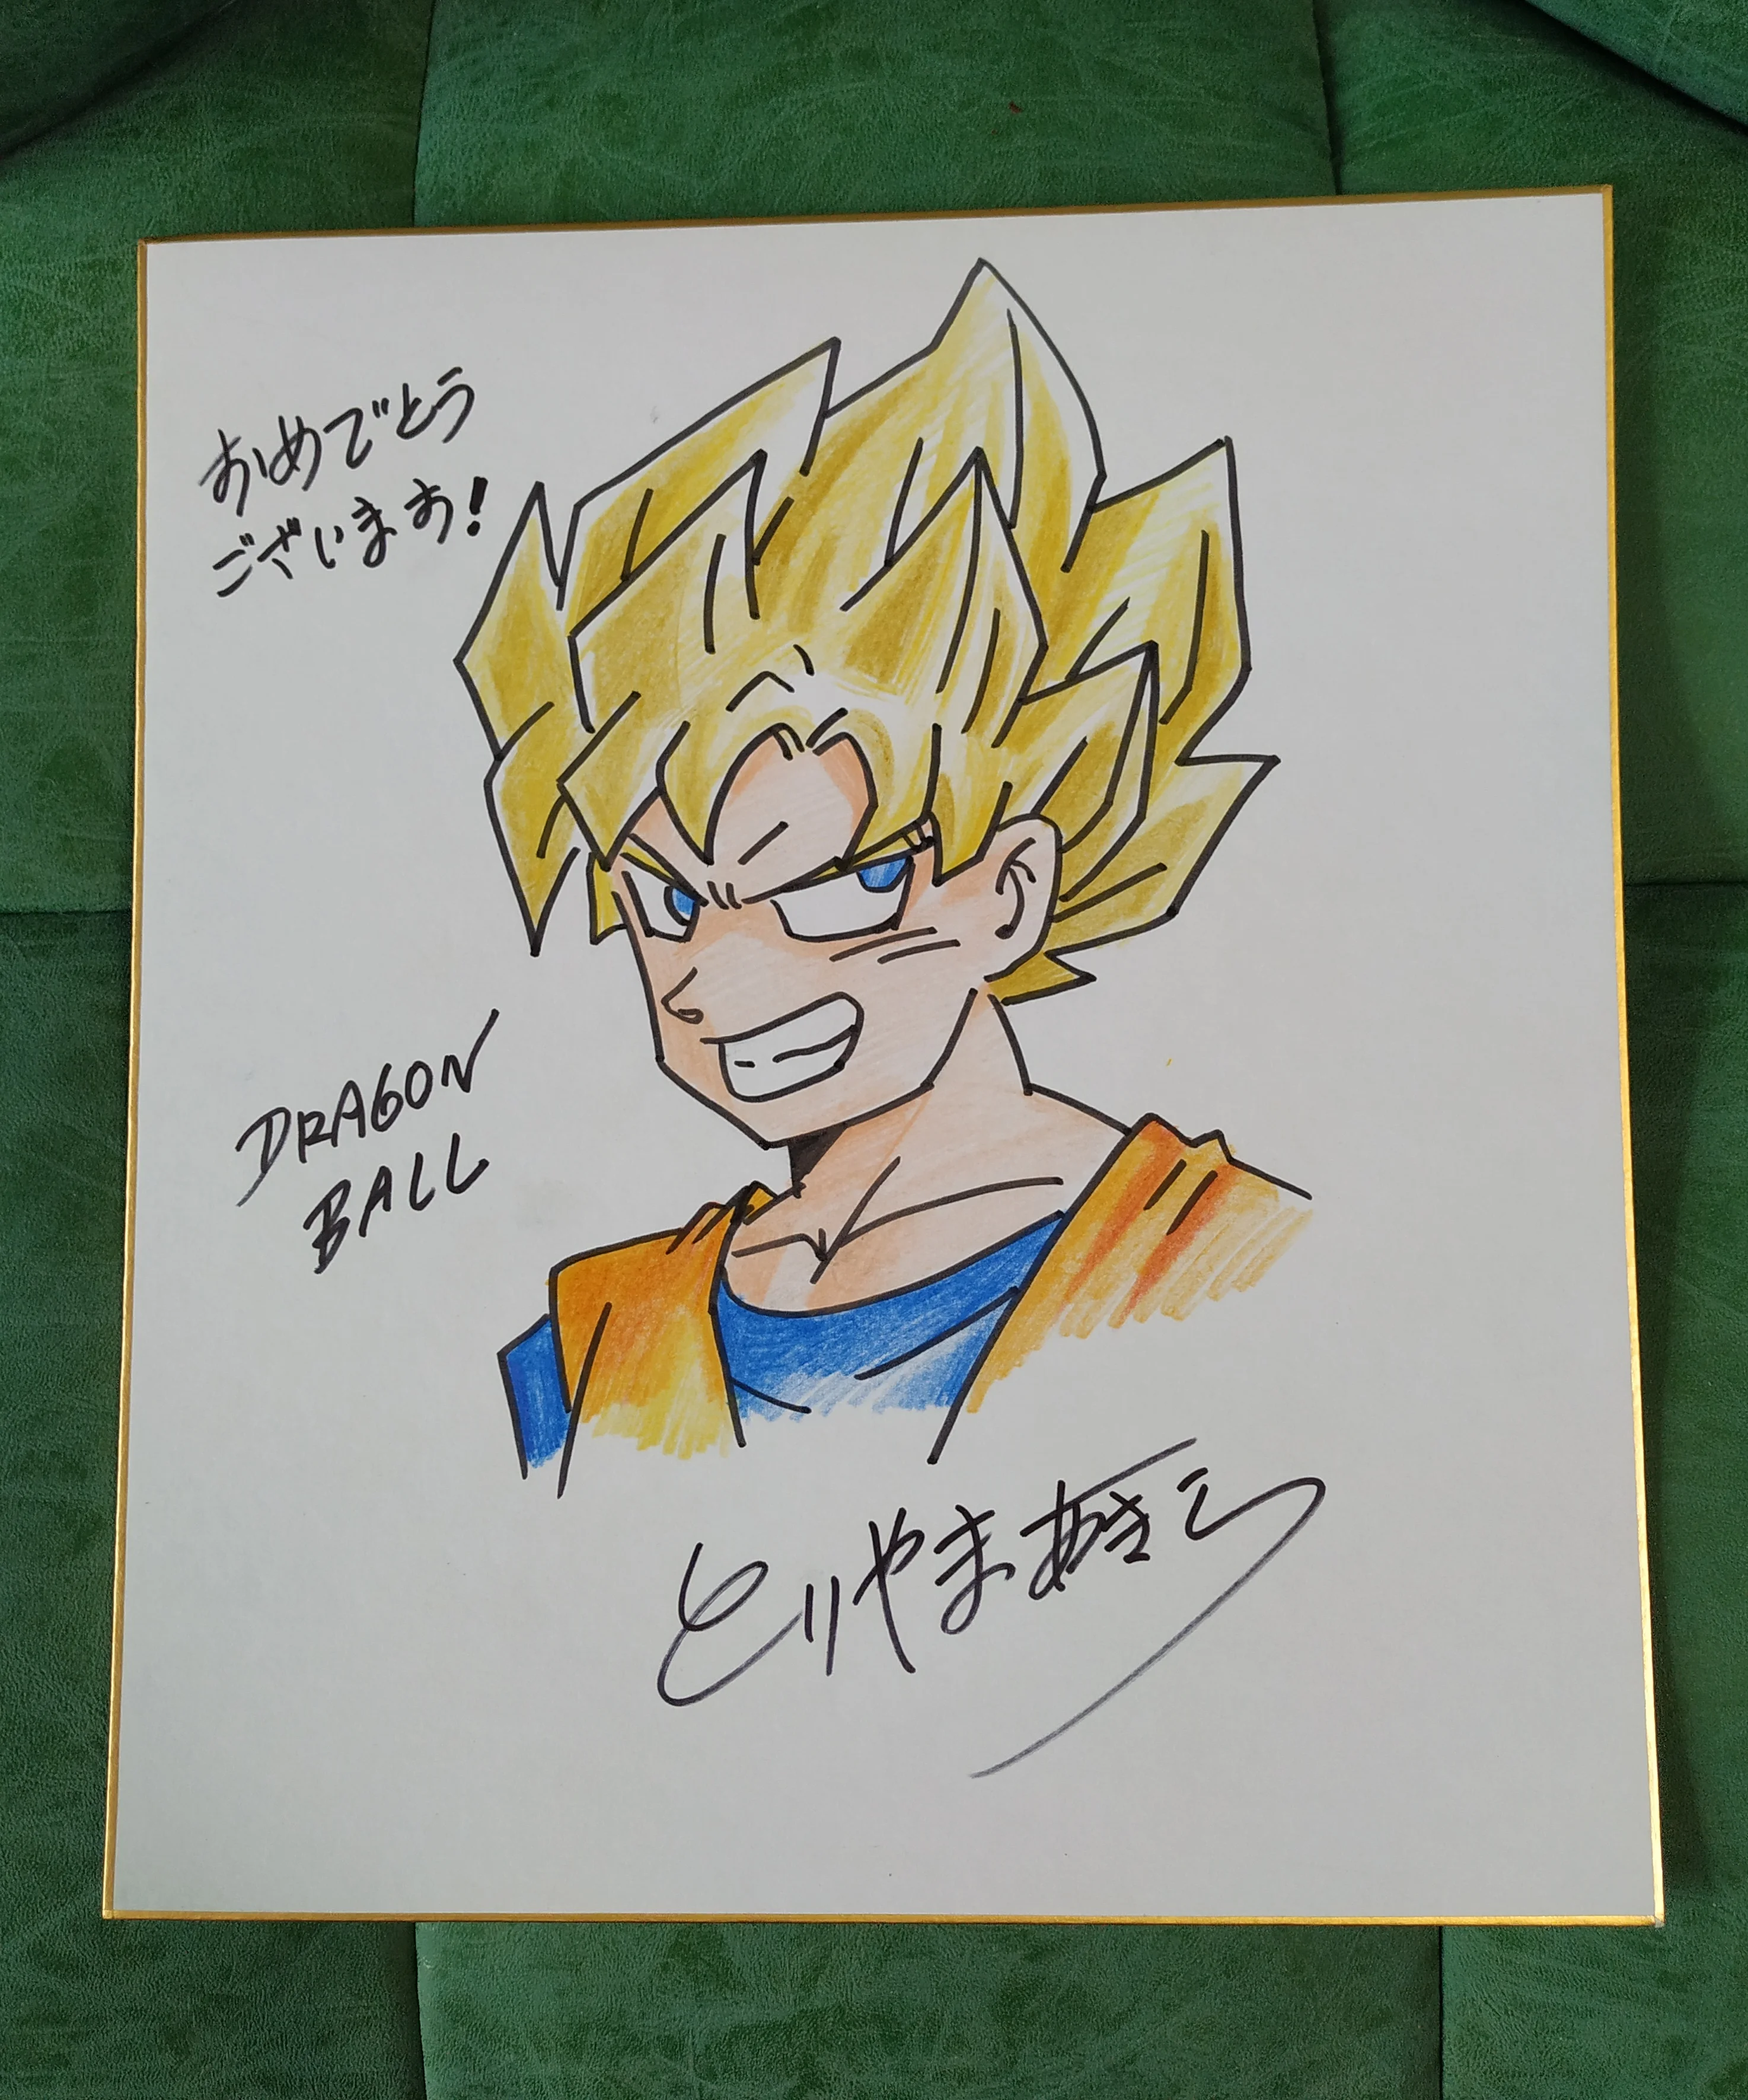 おめでとう
ございます!
DRAGON
BALL
とりやまあきら